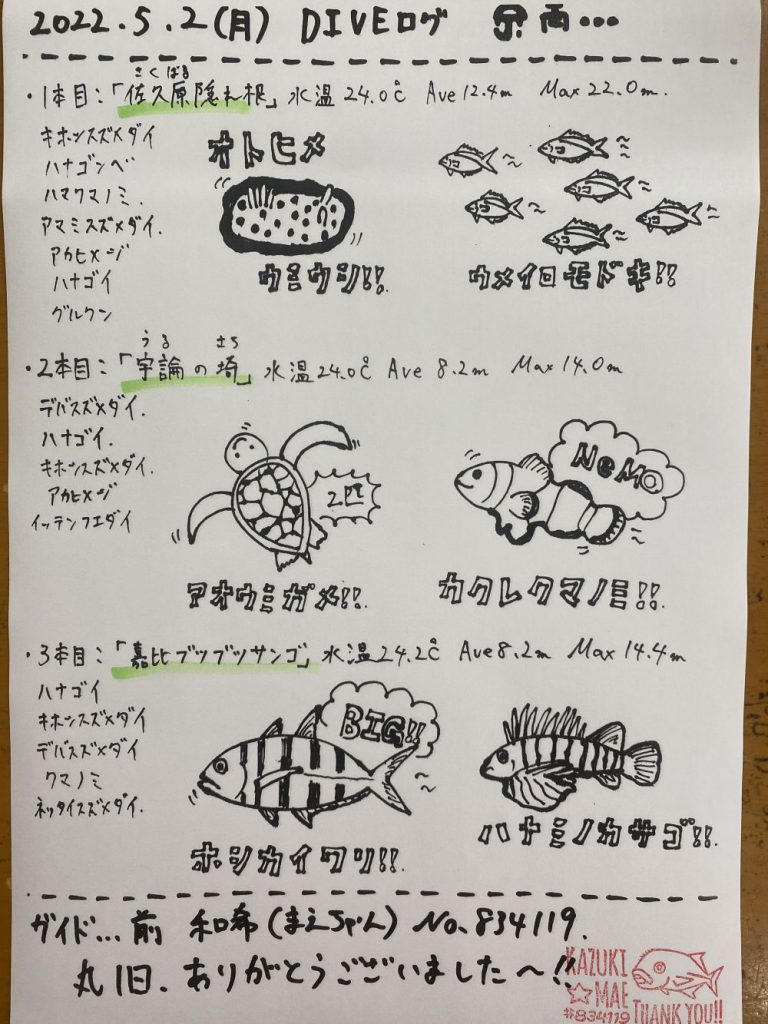 2022.5.2(月) DIVEログ 雨...
さくばる
・1本目：「佐久原隠れ根」水温24.0℃ Ave 12.4m Max 22.0m.
キホシスズメダイ
ハナゴンベ
ハマクマノミ.
アマミスズメダイ.
アカヒメジ
ハナゴイ
グルクン
オトヒメ
ウミウシ!!.
ウメイロモドキ!!
うる さち
・2本目：「宇論の埼」水温24.0℃ Ave 8.2m Max 14.0m
デバスズメダイ.
ハナゴイ.
キホシスズメダイ.
アカヒメジ
イッテンフエダイ
2匹
アオウミガメ!!.
NeMO
カクレクマノミ!!.
・3本目：「嘉比ブツブツサンゴ」水温24.2℃ Ave 8.2m Max 14.4m
ハナゴイ
キホシスズメダイ
デバスズメダイ
クマノミ
ネッタイスズメダイ.
BIG!!
ホシカイワリ!!.
ハナミノカサゴ!!.
ガイド...前 和希(まえちゃん) No.834119.
丸1日.ありがとうございました〜!!
KAZUKI
☆MAE
#834119 THANK YOU!!